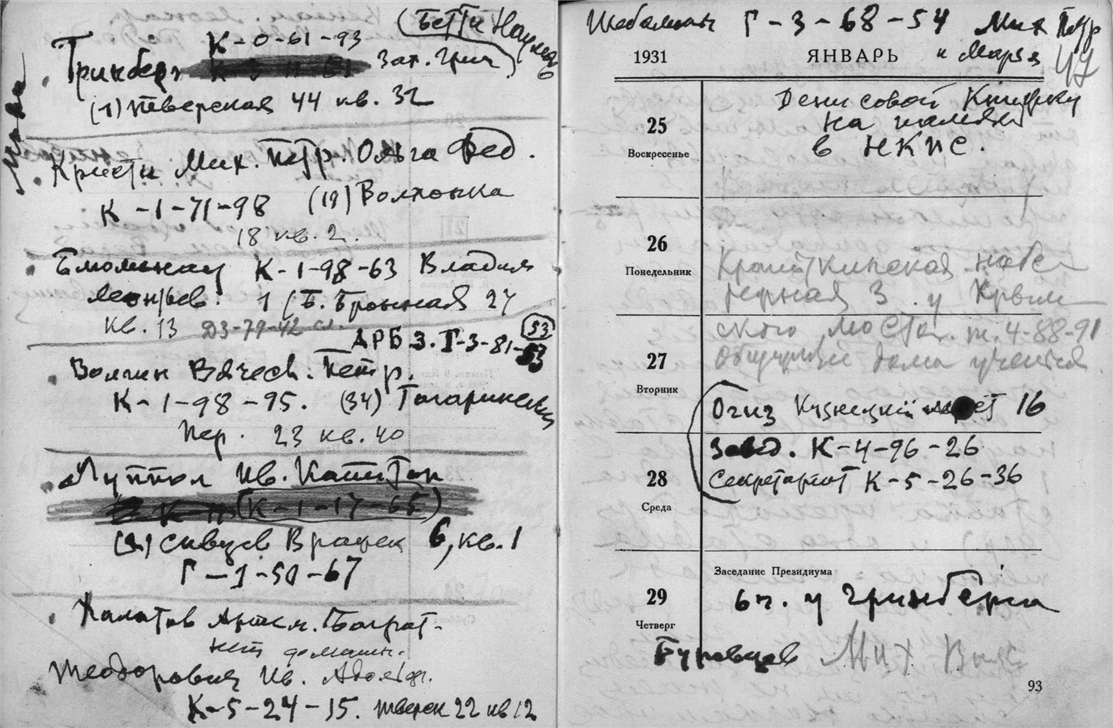 (Бетти Наумов
К-0-61-93
Гринберг Зах. Григ.
(1) Тверская 44 кв. 32
Кристи Мих. Петр. Ольга Фед.
К-1-71-98 (19) Волхонка
18 кв. 2.
К-1-98-63 Владим
Леонтьев. 1 (Б. Бронная 27
кв. 13 Д3-79-42 сл.
53
АРБ 3. Г-3-81-53
Волгин Вячесл. Петр.
К-1-98-95. (34) Гагаринский
пер. 23 кв. 40
Луппол Ив. Капитон
(К-1-17-65)
(2) Сивцев Вражек 6, кв. 1
Г-1-50-67
Халатов Артем. Баграт.
нет домашн.
Теодорович Ив. Адольф.
К-5-24-15. Тверск 22 кв 12
Шабалины Г-3-68-54 Мих Петр
и Марья
1931 ЯНВАРЬ
Денисовой Книжку
на память
в НКПС.
25
Воскресенье
26
Понедельник
Кропоткинская набе
режная 3 у Крым
ского моста. т. 4-88-91
27
Вторник
Огиз Кузнецкий мост 16
Завед. К-4-96-26
28
Секретариат К-5-26-36
Среда
Заседание Президиума
29
6 ч. у Гринберга
Четверг
Буровцев Мих Вас
93